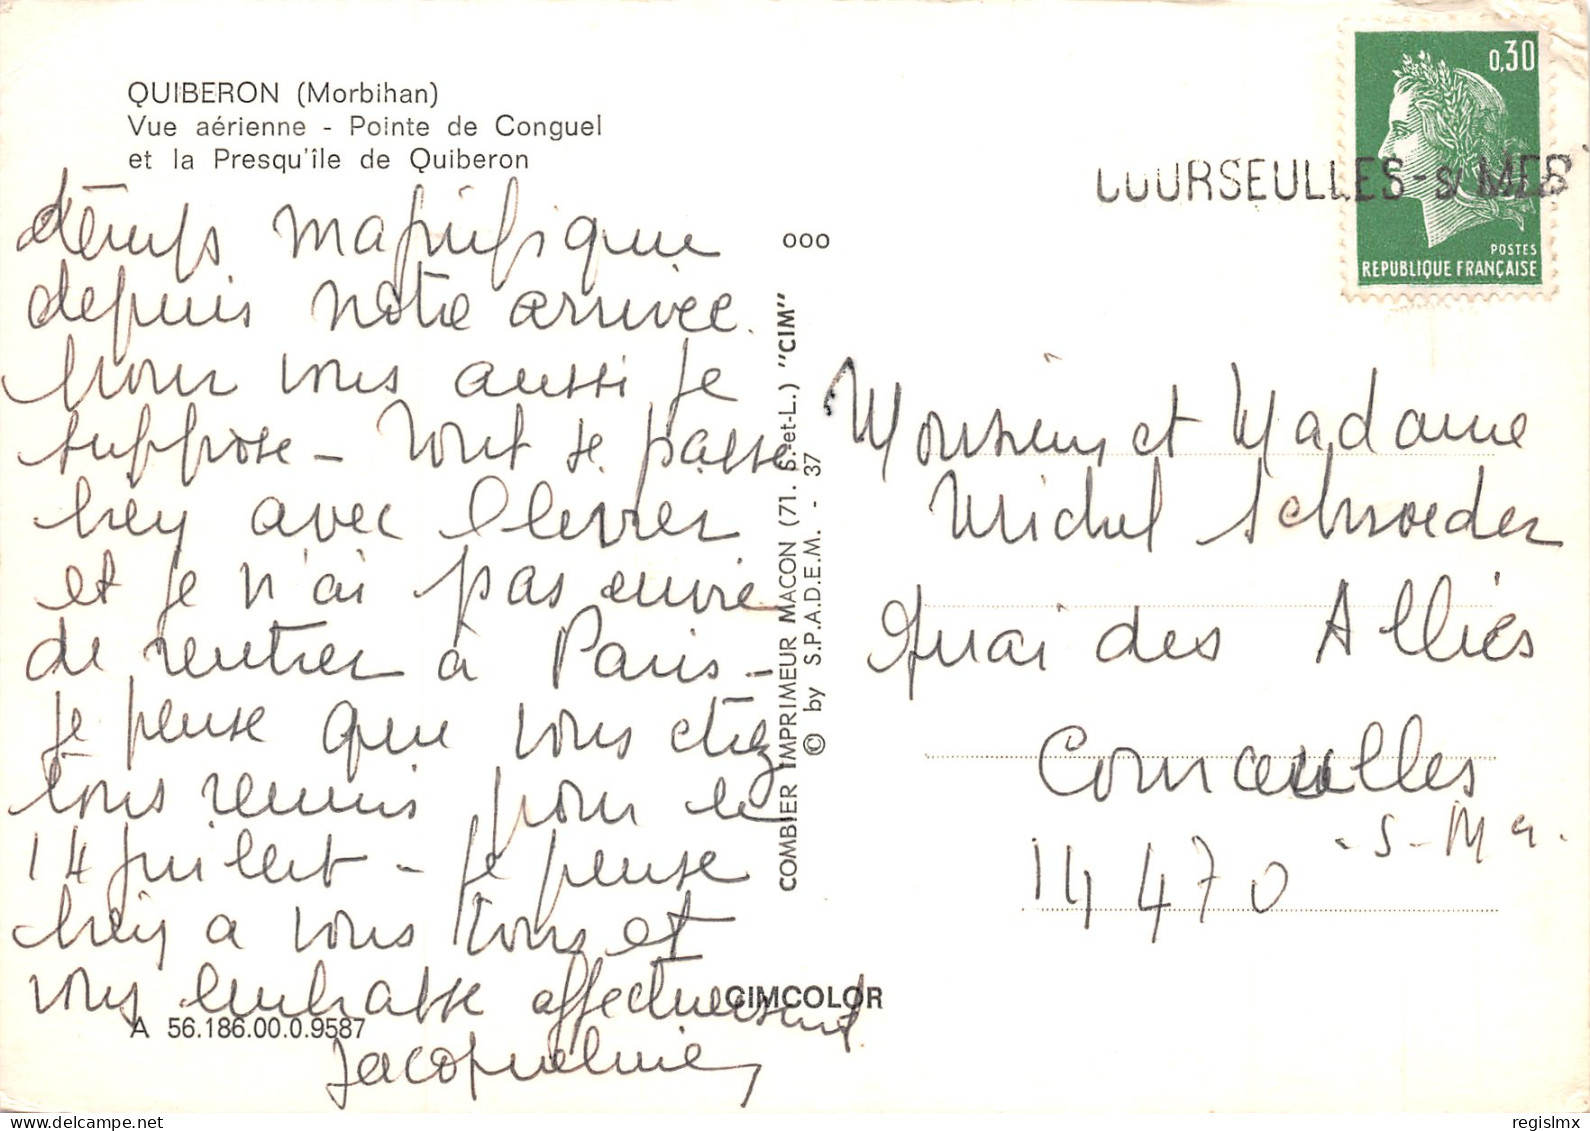 QUIBERON (Morbihan)
Vue aérienne - Pointe de Conguel
et la Presqu'île de Quiberon
temps magnifique
depuis notre arrivée.
Pour vous aussi je
suppose - Tout se passe
bien avec
et je n'ai pas envie
de rentrer à Paris -
je pense que vous étiez
tous réunis pour le
14 juillet - Je pense
bien à vous tous et
vous embrasse affectueusement
Jacqueline
A 56.186.00.0.9587
000
COMBIER IMPRIMEUR MACON (71. S.-et-L.) "CIM"
© by S.P.A.D.E.M. - 37
CIMCOLOR
0,30
POSTES
REPUBLIQUE FRANÇAISE
COURSEULLES-S/MER
Monsieur et Madame
Michel Schroeder
Quai des Alliés
Courseulles
-S-Mer.
14470
regislmx